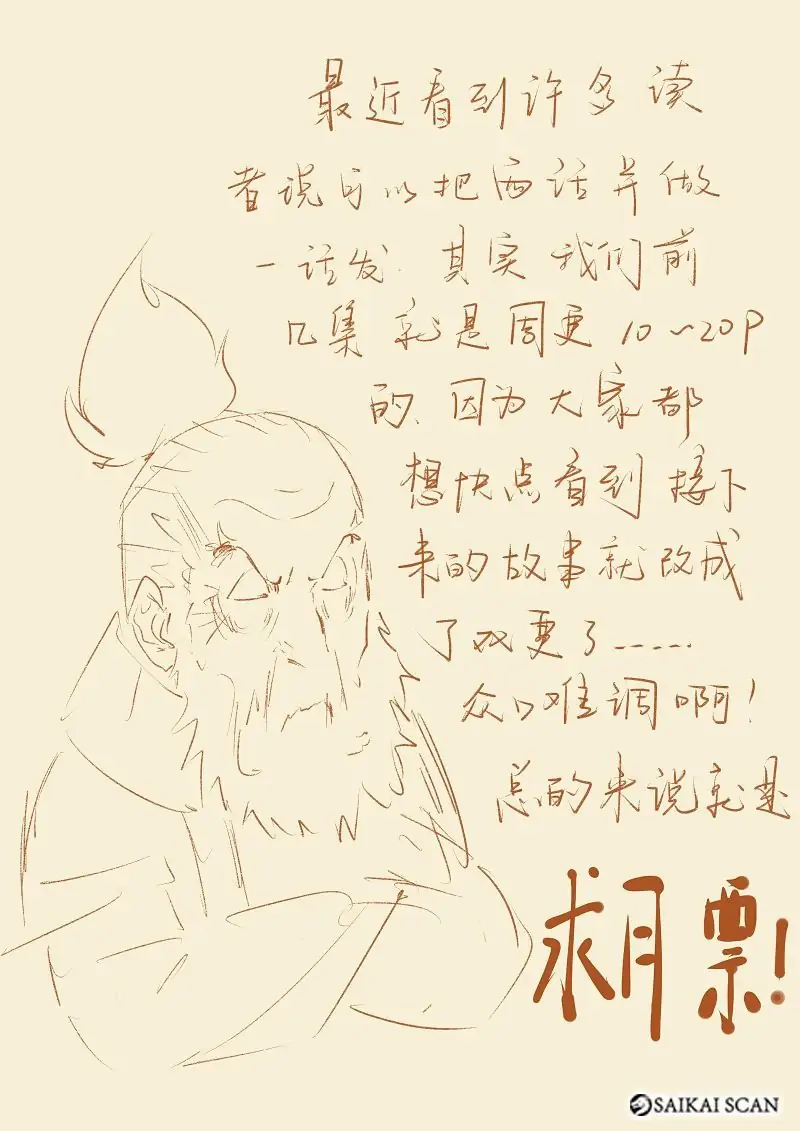 最近看到许多读
者说可以把两话并做
一话发.其实我们前
几集就是周更10~20P
的、因为大家都
想快点看到接下
来的故事就改成
了双更了……
众口难调啊!
总的来说就是
求月票!
SAIKAI SCAN